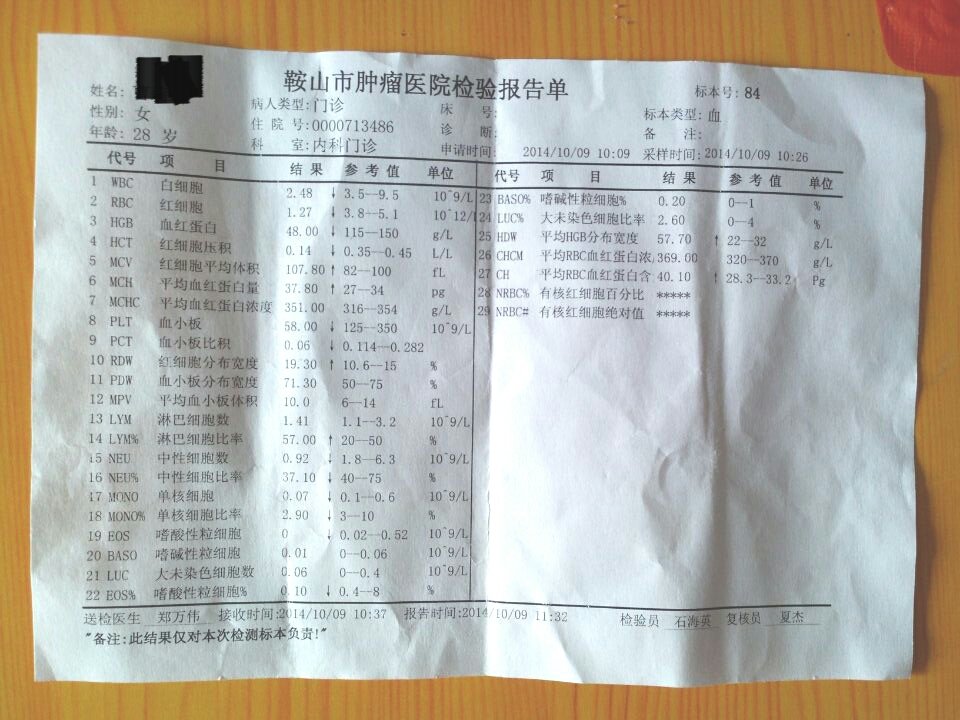 鞍山市肿瘤医院检验报告单
姓名: 标本号: 84
性别: 女 病人类型: 门诊 床 号: 标本类型: 血
年龄: 28 岁 住 院 号: 0000713486 诊 断: 备 注:
科 室: 内科门诊 申请时间: 2014/10/09 10:09 采样时间: 2014/10/09 10:26
代号 项 目 结 果 参 考 值 单位
1 WBC 白细胞 2.48 ↓ 3.5--9.5 10^9/L
2 RBC 红细胞 1.27 ↓ 3.8--5.1 10^12/L
3 HGB 血红蛋白 48.00 ↓ 115--150 g/L
4 HCT 红细胞压积 0.14 ↓ 0.35--0.45 L/L
5 MCV 红细胞平均体积 107.80 ↑ 82--100 fL
6 MCH 平均血红蛋白量 37.80 ↑ 27--34 pg
7 MCHC 平均血红蛋白浓度 351.00 316--354 g/L
8 PLT 血小板 58.00 ↓ 125--350 10^9/L
9 PCT 血小板比积 0.06 ↓ 0.114--0.282
10 RDW 红细胞分布宽度 19.30 ↑ 10.6--15 %
11 PDW 血小板分布宽度 71.30 50--75 %
12 MPV 平均血小板体积 10.0 6--14 fL
13 LYM 淋巴细胞数 1.41 1.1--3.2 10^9/L
14 LYM% 淋巴细胞比率 57.00 ↑ 20--50 %
15 NEU 中性细胞数 0.92 ↓ 1.8--6.3 10^9/L
16 NEU% 中性细胞比率 37.10 ↓ 40--75 %
17 MONO 单核细胞 0.07 ↓ 0.1--0.6 10^9/L
18 MONO% 单核细胞比率 2.90 ↓ 3--10 %
19 EOS 嗜酸性粒细胞 0 ↓ 0.02--0.52 10^9/L
20 BASO 嗜碱性粒细胞 0.01 0--0.06 10^9/L
21 LUC 大未染色细胞数 0.06 0--0.4 10^9/L
22 EOS% 嗜酸性粒细胞% 0.10 ↓ 0.4--8 %
代号 项 目 结 果 参 考 值 单位
23 BASO% 嗜碱性粒细胞% 0.20 0--1 %
24 LUC% 大未染色细胞比率 2.60 0--4 %
25 HDW 平均HGB分布宽度 57.70 ↑ 22--32 g/L
26 CHCM 平均RBC血红蛋白浓 369.00 320--370 g/L
27 CH 平均RBC血红蛋白含 40.10 ↑ 28.3--33.2 Pg
28 NRBC% 有核红细胞百分比 *****
29 NRBC# 有核红细胞绝对值 *****
送检医生 郑万伟 接收时间: 2014/10/09 10:37 报告时间: 2014/10/09 11:32 检验员 石海英 复核员 夏杰
"备注:此结果仅对本次检测标本负责!"